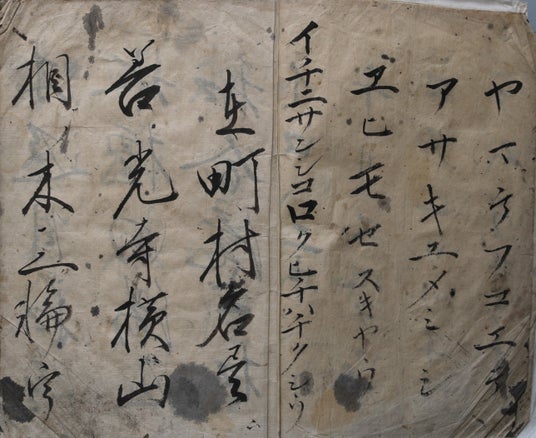 ヤマケフコエテ
アサキユメミシ
ヱヒモセズスキヤウ
イチニサンシゴロクヒチハチクジウ
在町村名尽
善光寺横山
相ノ木三輪宇